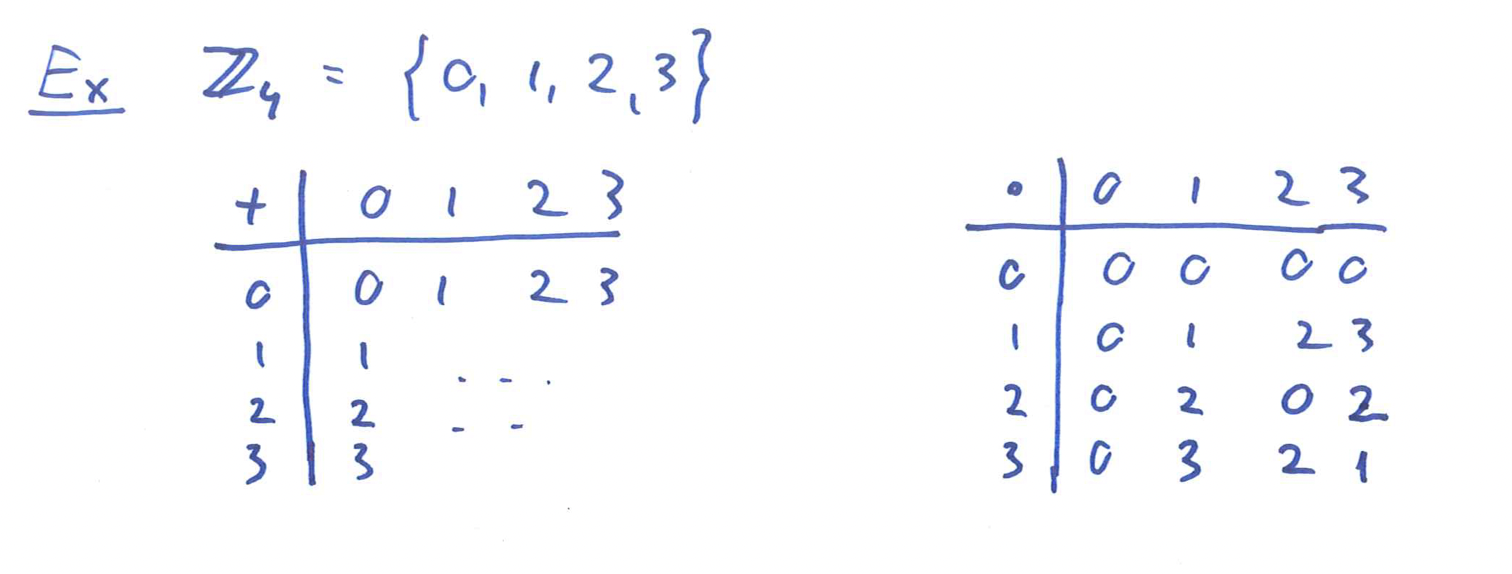 Ex ℤ₄ = {0, 1, 2, 3}
+ | 0 1 2 3
0 | 0 1 2 3
1 | 1 - - .
2 | 2 - -
3 | 3
• | 0 1 2 3
0 | 0 0 0 0
1 | 0 1 2 3
2 | 0 2 0 2
3 | 0 3 2 1